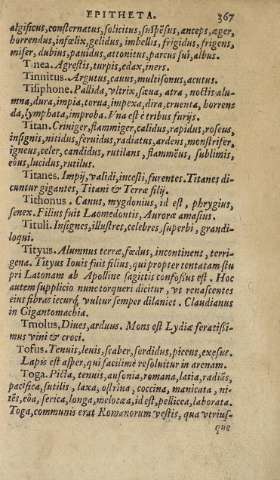 EPITHETA. 367
algificus, consternatus, solicitus, suspēsus, anceps, æger,
horrendus, infœlix, gelidus, imbellis, frigidus, frigens,
miser, dubius, pauidus, attonitus, parcus sui, albus.
Tinea. Agrestis, turpis, edax, iners.
Tinnitus. Argutus, cauus, multisonus, acutus.
Tisiphone. Pallida, vltrix, sæua, atra, noctis alu-
mna, dura, impia, torua, impexa, dira, cruenta, horren
da, lymphata, improba. Vna est è tribus furijs.
Titan. Criniger, flammiger, calidus, rapidus, roseus,
insignis, nitidus, feruidus, radiatus, ardens, monstrifer,
igneus, celer, candidus, rutilans, flammeus, sublimis,
eous, lucidus, rutilus.
Titanes. Impij, validi, incesti, furentes. Titanes di-
cuntur gigantes, Titani & Terræ filij.
Tithonus. Canus, mygdonius, id est, phrygius,
senex. Filius fuit Laomedontis, Auroræ amasius.
Tituli. Insignes, illustres, celebres, superbi, grandi-
loqui.
Tityus. Alumnus terræ, fœdus, incontinens, terri-
gena. Tityus Iouis fuit filius, qui propter tentatam stu
pri Latonam ab Apolline sagittis confossus est. Hoc
autem supplicio nunc torqueri dicitur, vt renascentes
eius fibras iecurq́, vultur semper dilaniet. Claudianus
in Gigantomachia.
Tmolus, Diues, arduus. Mons est Lydiæ feracissi-
mus vini & croci.
Tofus. Tenuis, leuis, scaber, sordidus, piceus, exesus.
Lapis est asper, qui facilimè resoluitur in arenam.
Toga. Picta, tenuis, ausonia, romana, latia, radiās,
pacifica, sutilis, laxa, ostrina, coccina, manicata, ni-
tēs, eōa, serica, longa, melotæa, id est, pellicea, laborata.
Toga, communis erat Romanorum vestis, qua vtrius-
que